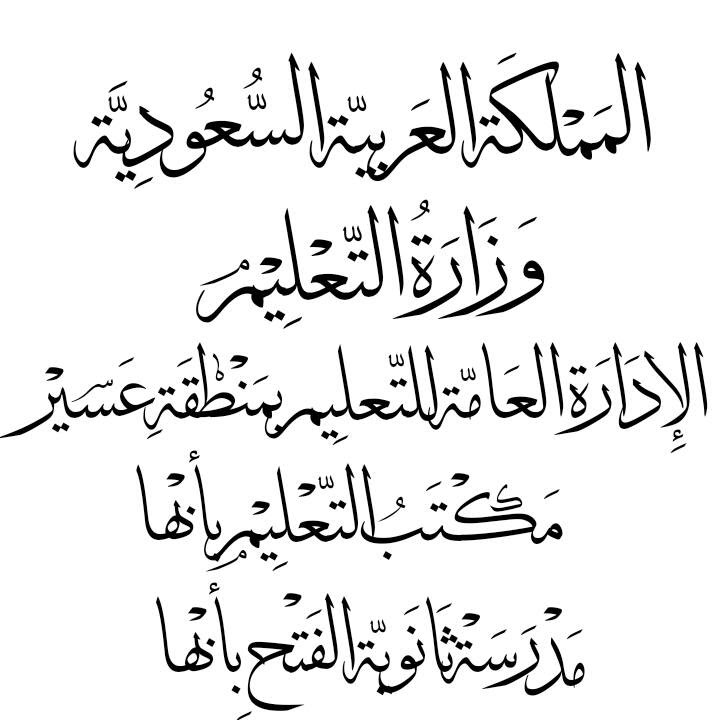 المَمْلَكَة العَرَبيَّة السُّعُودِيَّة
وَزَارَةُ التَّعْلِيْمُ
الإِدَارَة العَامَّة للتَّعلِيم بمَنْطْقَةِ عَسَيْر
مَكْتَبُ التَّعْلِيْمِ بِأَبْهَا
مَدْرَسَة ثَانَويَّة الفَتْح بِأَبْهَا